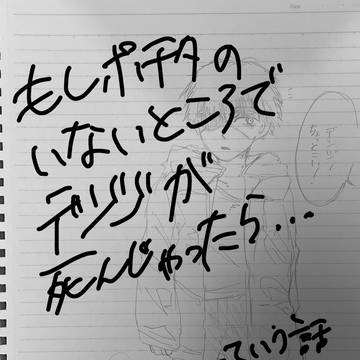 もしポチタの
いないところで
デンジが
死んじゃったら…
っていう話
デンジ!
ちょっとこい!